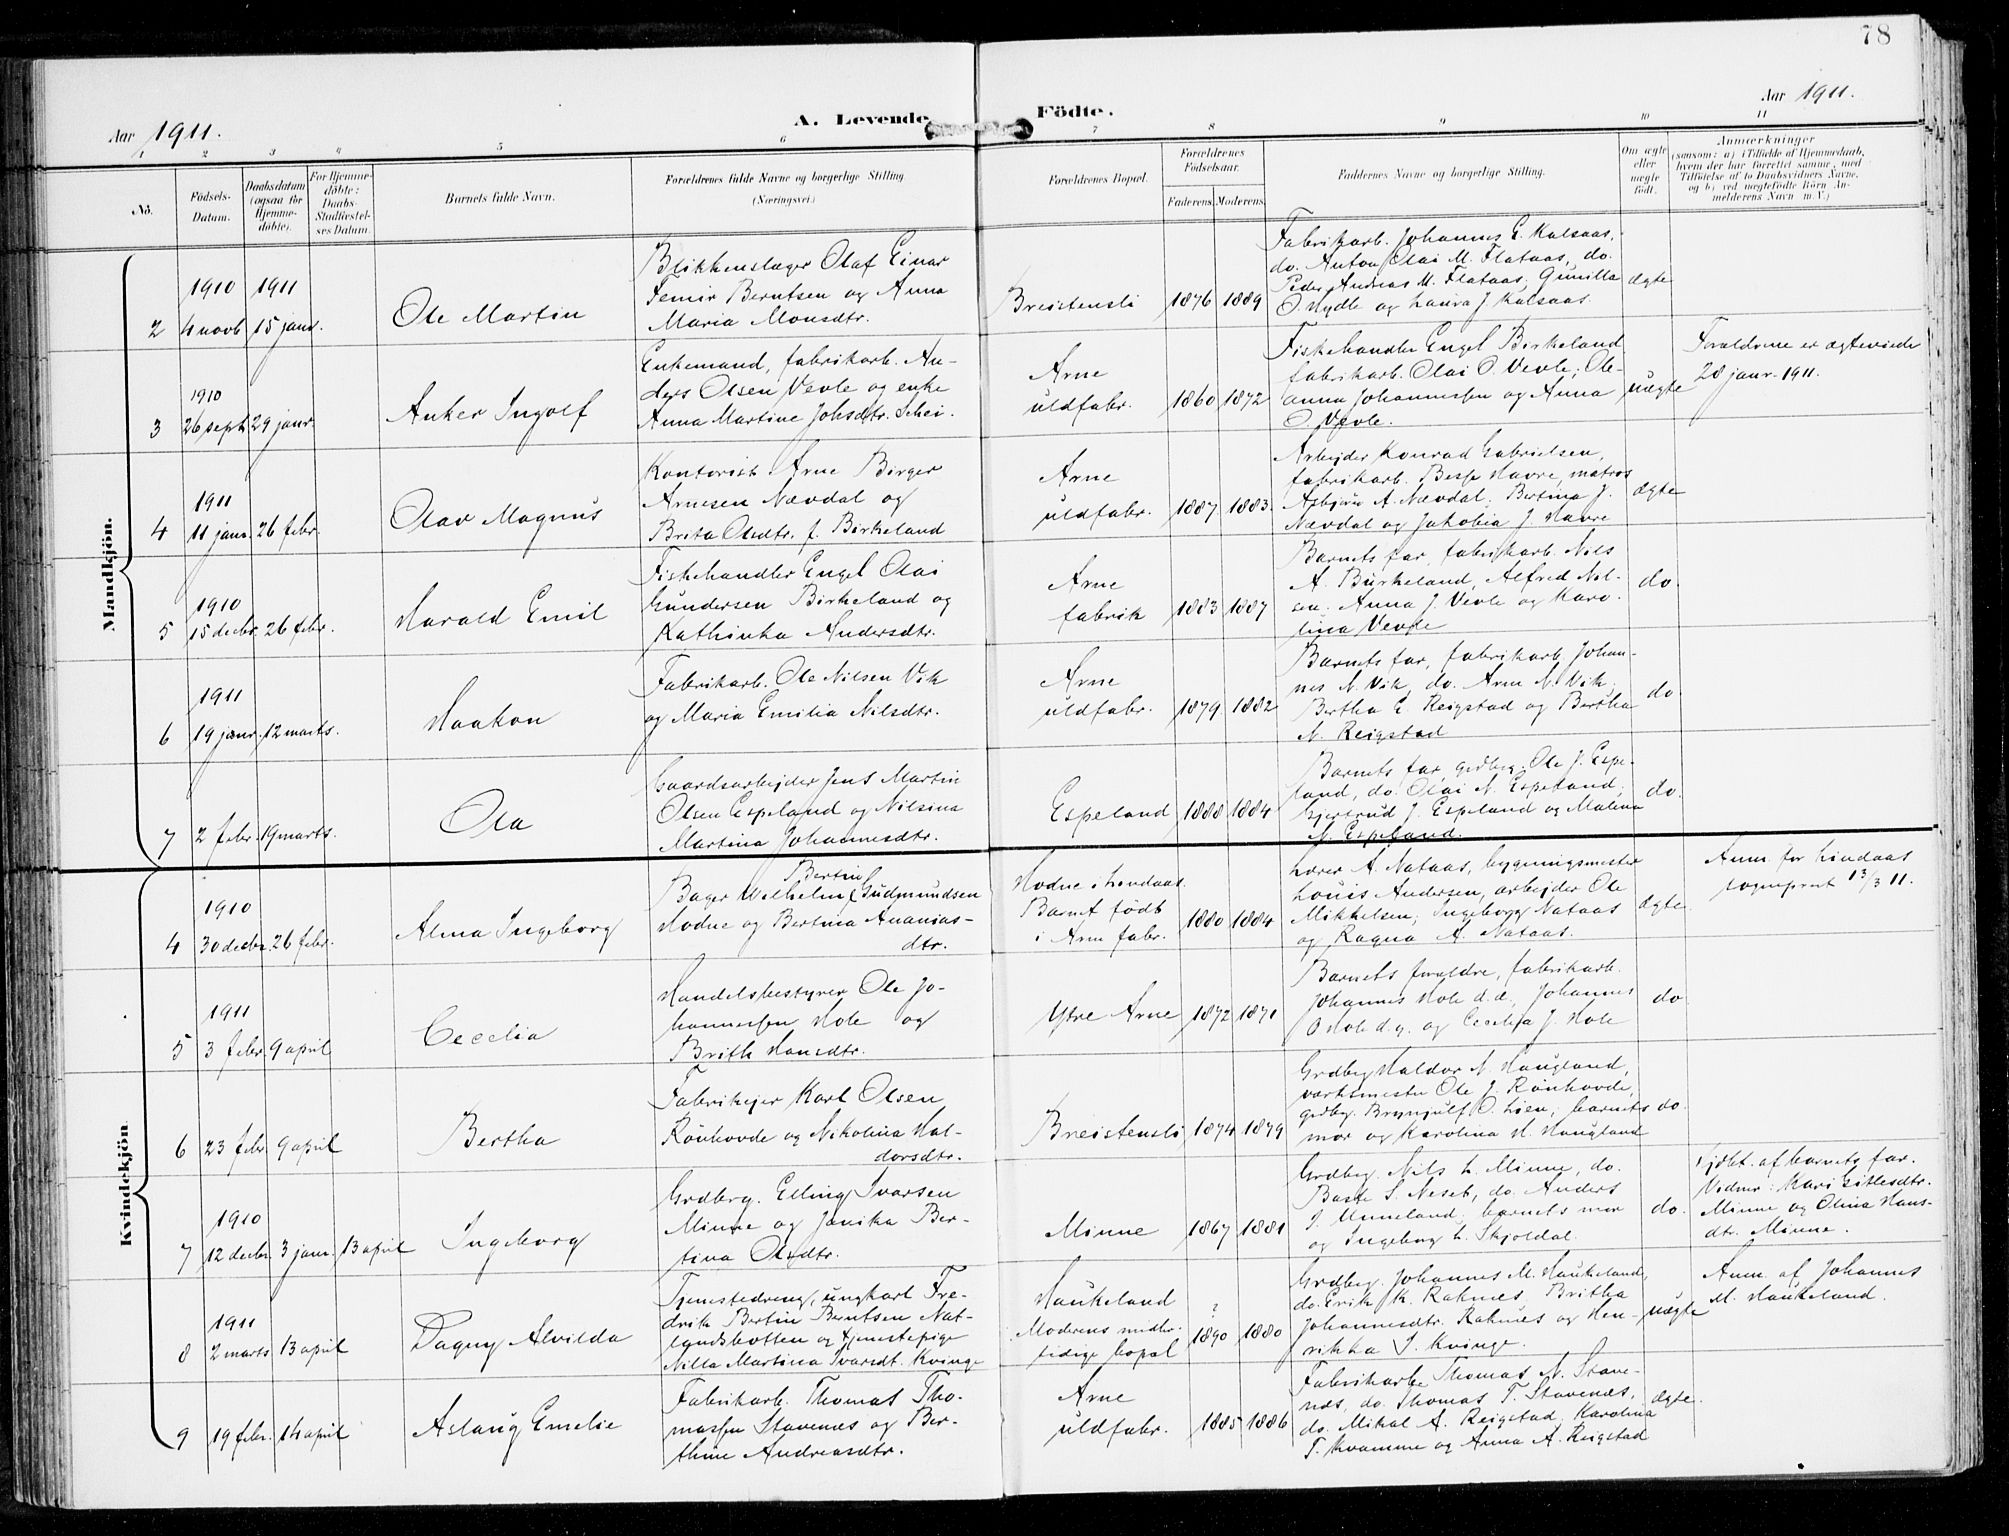 78
Aar 1911.
A. Levende Födte.
Aar 1911.
1 2 3 4 5 6 7 8 9 10 11
No.
Födsels-
Datum.
Daabsdatum
(ogsaa for
Hjemme-
döbte).
For Hjemme-
döbte:
Daabs-
Stadfæstel-
ses Datum.
Barnets fulde Navn.
Forældrenes fulde Navne og borgerlige Stilling.
(Næringsvei.)
Forældrenes Bopæl.
Forældrenes
Födselsaar.
Faderens. Moderens.
Faddernes Navne og borgerlige Stilling.
Om ægte
eller
uægte
födt.
Anmærkninger
(saasom: a) i Tilfælde af Hjemmedaab,
hvem der har forrettet samme, med
Tilföielse af to Daabsvidners Navne,
og b) ved uægtefödte Börn An-
melderens Navn m. V.)
Mandkjön.
2
1910
4 novb
1911
15 janr.
Ole Martin
Blikkenslager Olaf Einar
Femir Berntsen og Anna
Maria Monsdtr.
Breistensli
1876 1889
Fabrikarb. Johannes E. Kalsaas,
do. Anton Olai M. Flataas, do.
Peder Andreas M. Flataas, Gunilla
O. Nydle og Laura J. Kalsaas.
ægte
3
1910
26 sept.
29 janr.
Anker Ingolf
Enkemand, fabrikarb. An-
ders Olsen Vevle og enke
Anna Martine Johsdtr. Schei.
Arne
uldfabr.
1860 1872
Fiskehandler Engel Birkeland
fabrikarb. Olai O. Vevle, Ole-
anna Johannessen og Anna
O. Vevle.
uægte
Forældrene er ægteviede
28 janr. 1911.
4
1911
11 janr.
26 febr.
Olav Magnus
Kontorist Arne Birger
Arnesen Nævdal og
Brita Olsdtr. f. Birkeland
Arne
uldfabr.
1887 1883
Arbejder Konrad Gabrielsen,
fabrikarb. Besse Havre, matros
Asbjørn A. Nævdal, Bertina J.
Nævdal og Jakobia J. Havre
ægte
5
1910
15 decbr.
26 febr.
Harald Emil
Fiskehandler Engel Olai
Gundersen Birkeland og
Kathinka Andersdtr.
Arne
fabrik
1883 1887
Barnets far, fabrikarb. Nils
A. Burkeland, Alfred Nil-
sen. Anna J. Vevle og Karo-
lina Vevle
do.
6
1911
19 janr.
12 marts.
Haakon
Fabrikarb. Ole Nilsen Vik
og Maria Emilia Nilsdtr.
Arne
uldfabr.
1879 1882
Barnets far, fabrikarb. Johan-
nes N. Vik, do. Arne N. Vik,
Bertha E. Reigstad og Bertha
N. Reigstad
do.
7
2 febr.
19 marts.
Ola
Gaardsarbejder Jens Martin
Olsen Espeland og Nilsina
Martina Johannesdtr.
Espeland
1888 1884
Barnets far, grdbrg. Ole J. Espe-
land, do. Olai N. Espeland,
Gjertrud J. Espeland og Malena
N. Espeland.
do.
Kvindekjön.
4
1910
30 decbr.
26 febr.
Alma Ingeborg
Bertin
Bager Wilhelm Gudmundsen
Hodne og Bertina Ananias-
dtr.
Hodne i Lindaas.
Barnet födt
i Arne fabr.
1880 1884
Lærer A. Nataas, bygningsmester
Louis Andersen, arbejder Ole
Mikkelsen, Ingeborg Nataas
og Ragna A. Nataas.
ægte
Anm. for Lindaas
sogneprest 13/3 11.
5
1911
3 febr.
9 april
Cecelia
Handelsbestyrer Ole Jo-
hannessen Hole og
Brith Hansdtr.
Ytre Arne
1872 1871
Barnets forældre, fabrikarb.
Johannes Hole d.æ., Johannes
O Hole d.y. og Cecelia J. Hole
do.
6
23 febr.
9 april
Bertha
Fabrikejer Karl Olsen
Rönhovde og Nikolina Hal-
dorsdtr.
Breistensli
1874 1879
Grdbrg Haldor N. Haugland,
værksmester Ole J. Rönhovde,
grdbrg. Brynjulf O. Lien; barnets
mor og Karolina H. Haugland
do.
7
1910
12 decbr.
3 janr.
13 april
Ingeborg
Grdbrg. Elling Ivarsen
Minne og Janika Ber-
tina Olsdtr.
Minne
1867 1881
Grdbrg. Nils L. Minne, do.
Baste S. Neset, do. Anders
I. Unneland, barnets mor
og Ingeborg L. Skjoldal.
do.
Hjdbt. af barnets far.
Vidner: Kari Sillesdtr.
Minne og Olina Hans-
dtr. Minne.
8
1911
2 marts
13 april
Dagny Alvilda
Tjenestedreng, ungkarl Fre-
drik Bertin Berntsen Nat-
landsbotten og tjenestepige
Nilla Martina Ivarsdt. Kvinge
Haukeland
Moderens midler-
tidige bopæl
?
1890 1880
Grdbrg. Johannes M. Haukeland,
do. Erik K. Rahnes, Britha
Johannesdtr. Rahnes og Hen-
rikka I. Kvinge.
uægte
Anm. af Johannes
M. Haukeland.
9
19 febr.
14 april
Aslaug Emelie
Fabrikarb. Thomas Tho-
massen Stavenes og Ber-
thine Andreasdtr.
Arne
uldfabr.
1885 1886
Fabrikarb. Thomas N. Stave-
næs, do. Thomas T. Stavenæs,
do. Mikal A. Reigstad, Karolina
T. Kvamme og Anna A. Reigstad
ægte.